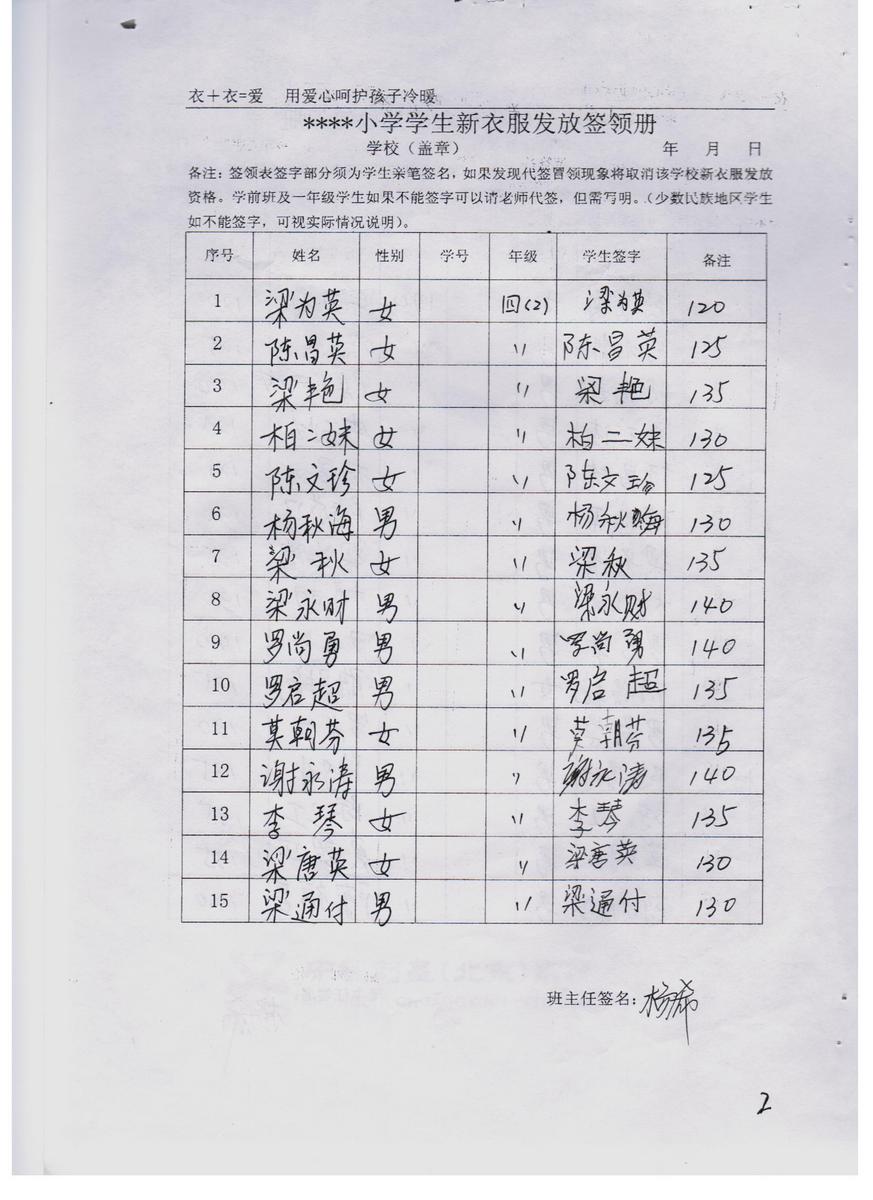 衣+衣=爱 用爱心呵护孩子冷暖
****小学学生新衣服发放签领册
学校（盖章） 年 月 日
备注：签领表签字部分须为学生亲笔签名，如果发现代签冒领现象将取消该学校新衣服发放
资格。学前班及一年级学生如果不能签字可以请老师代签，但需写明。（少数民族地区学生
如不能签字，可视实际情况说明）。
序号 姓名 性别 学号 年级 学生签字 备注
1 梁为英 女 四(2) 梁为英 120
2 陈昌英 女 〃 陈昌英 125
3 梁艳 女 〃 梁艳 135
4 柏二妹 女 〃 柏二妹 130
5 陈文珍 女 〃 陈文珍 125
6 杨秋海 男 〃 杨秋海 130
7 梁秋 女 〃 梁秋 135
8 梁永财 男 〃 梁永财 140
9 罗尚勇 男 〃 罗尚勇 140
10 罗启超 男 〃 罗启超 135
11 莫朝芬 女 〃 莫朝芬 135
12 谢永涛 男 〃 谢永涛 140
13 李琴 女 〃 李琴 135
14 梁唐英 女 〃 梁唐英 130
15 梁通付 男 〃 梁通付 130
班主任签名：杨希
2